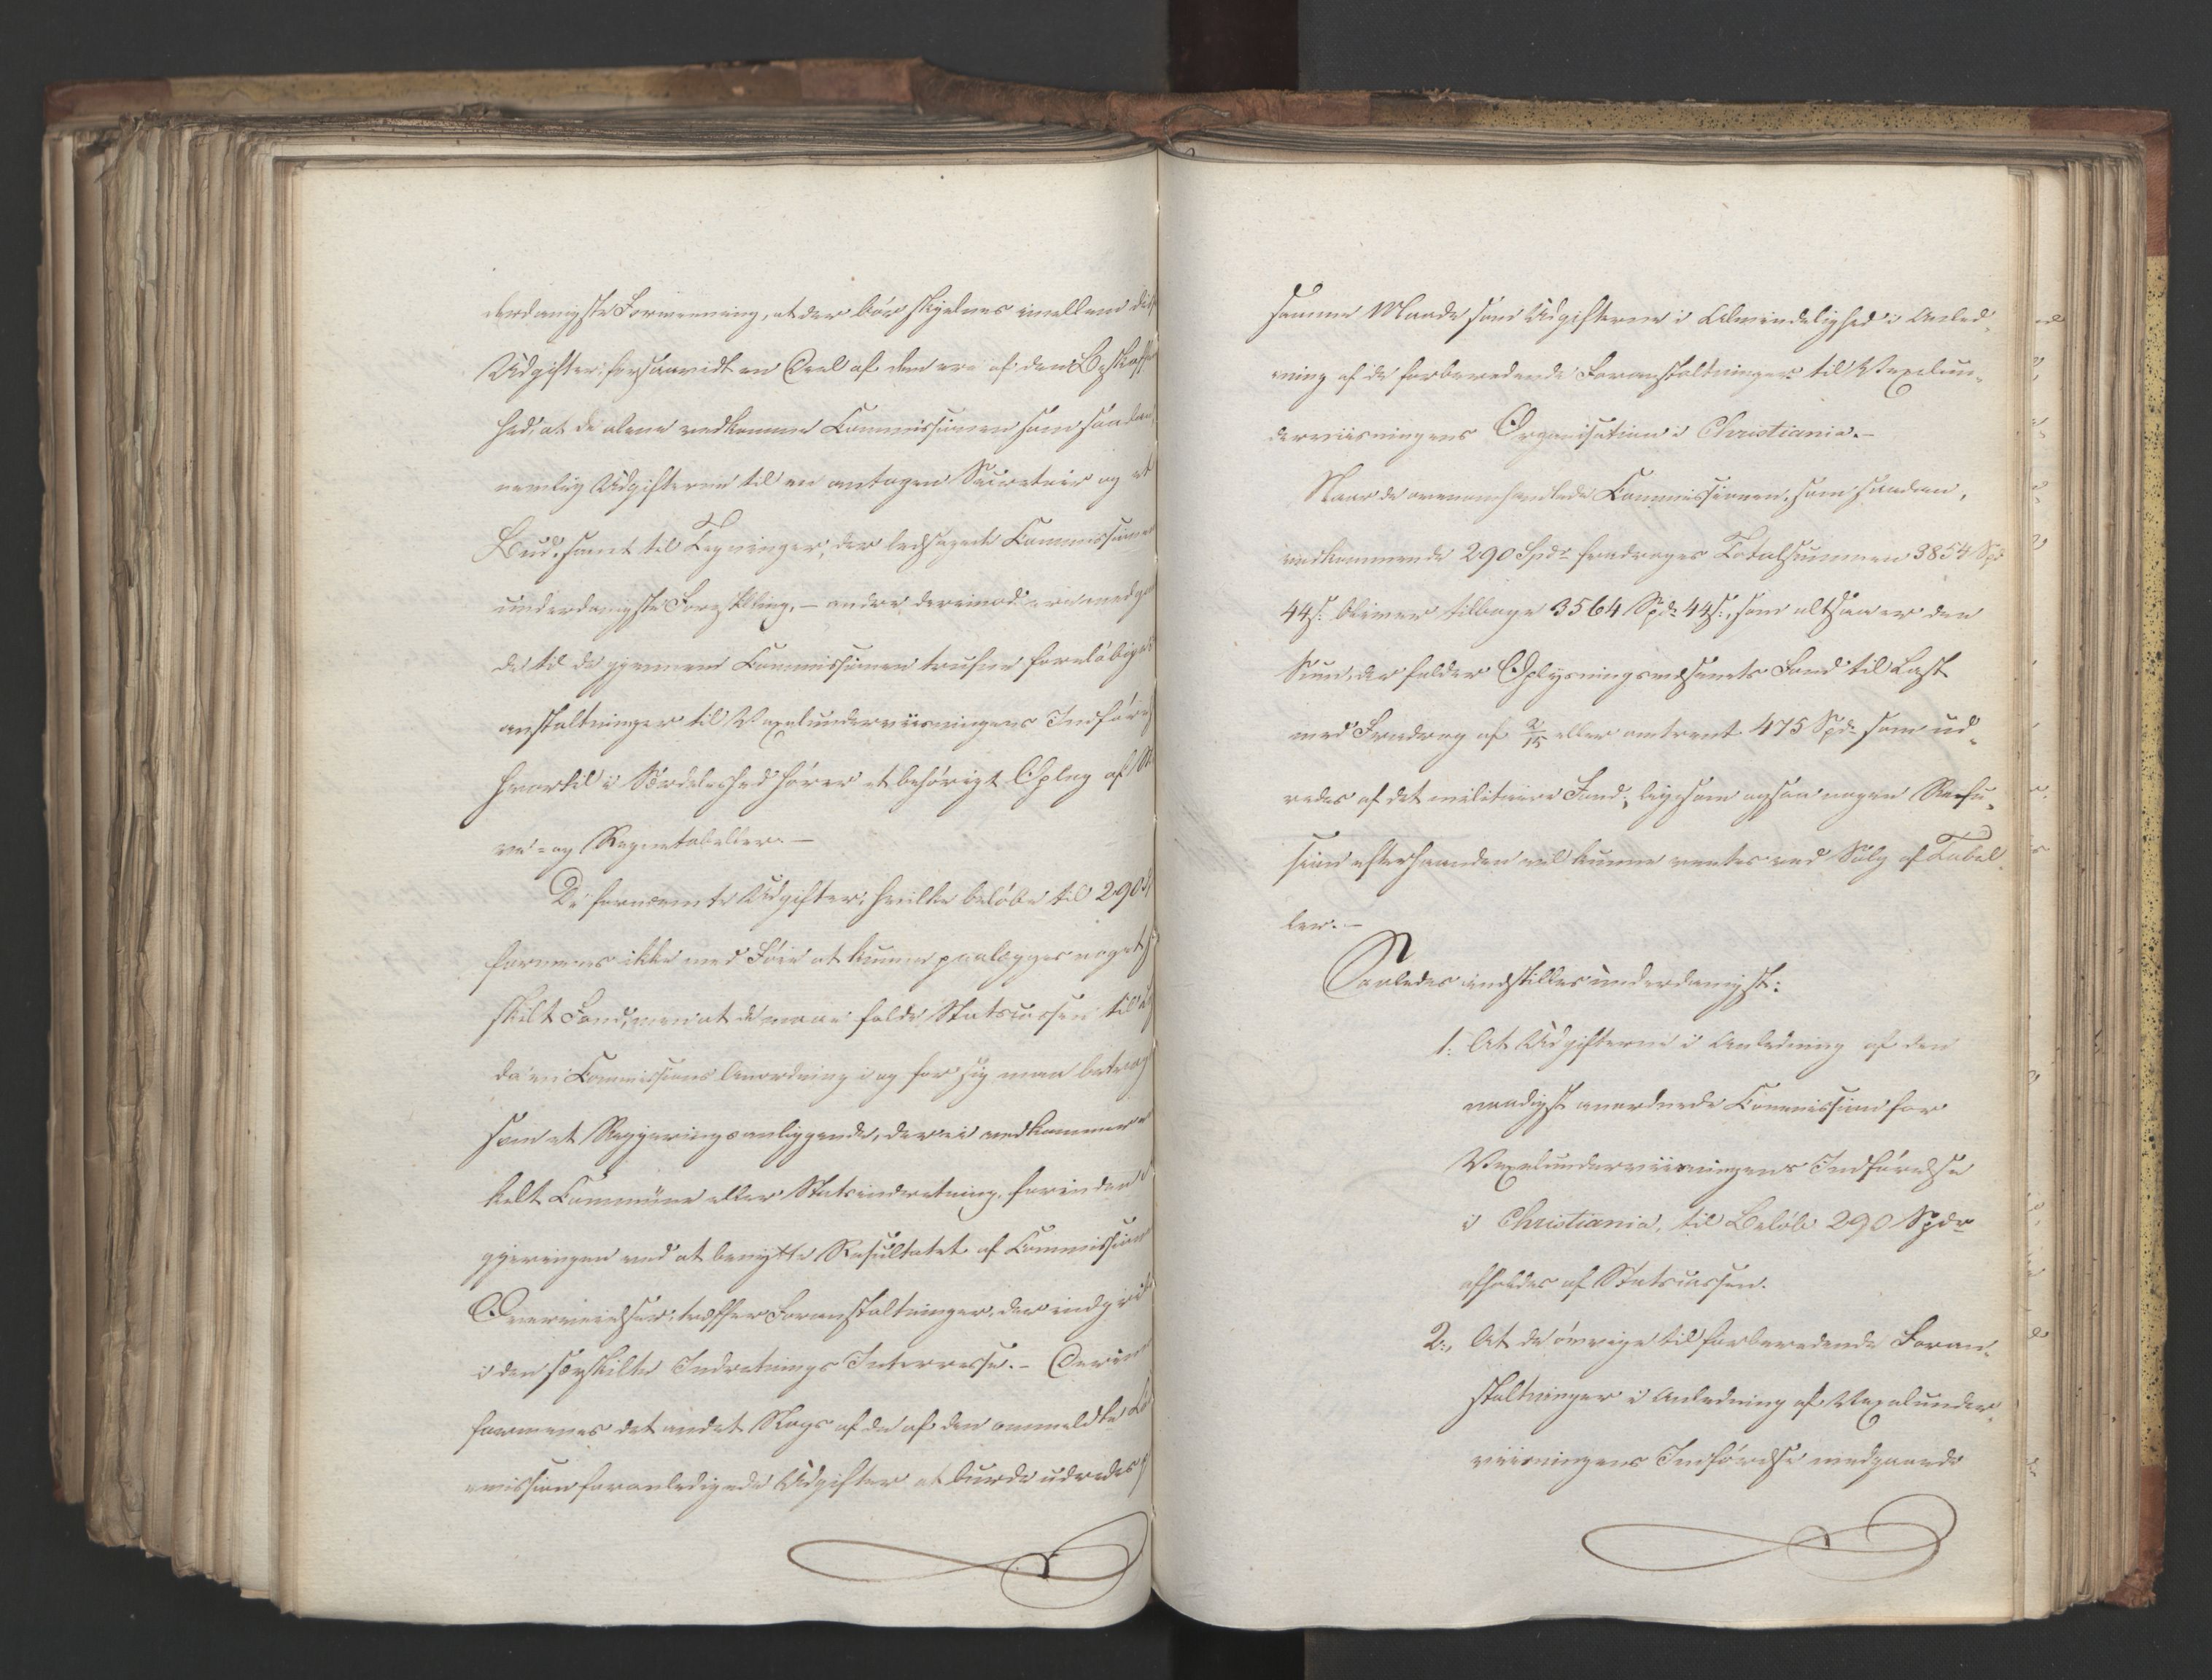 derdanigste Formeening, at der bør skjelnes imellem dis
Udgifter, forsaavidt en Deel af dem ere af den Beskaffen
hed, at de alene vedkomme Commissionen som saadan,
nemlig Udgifterne til en antagen Secretair og et
Bud, samt til Tegninger, der ledsagede Commissionens
underdanigste Forestilling, — andre derimod ere medgaae
de til de gjennem Commissionen trufne foreløbige
anstaltninger til Vexelunderviisningens Indførels
hvortil i Særdeleshed hører et behørigt Oplag af
ve- og Regnetabeller. —
De førnævnte Udgifter, hvilke beløbe til 290
formenes ikke med Føie at kunne paalægges noget
skilt Fond, men at de maae falde Statscassen til
da en Commissions Anordning i og for sig maa betrag
som et Regjeringsanliggende, der ei vedkommer
kelt Commune eller Statsindretning, førinden
gjeringen ved at benytte Resultatet af Commissionens
Overveielser, træffer Foranstaltninger, der indgribe
i den særskilte Indretnings Interesse. — Derimod
formenes det andet Slags af de af den ommeldte
mission foranledigede Udgifter at burde udredes
samme Maade som Udgifterne i Almindelighed i Anled-
ning af de forberedende Foranstaltninger til Vexelun-
derviisningens Organisation i Christiania. —
Naar de ovenomhandlede Commissionen, som saadan,
vedkommende 290 Spdr fradrages Totalsummen 3854 Spd
44 s: bliver tilbage 3564 Spdr 44 s:, som altsaa er den
Sum, der falder Oplysningsvæsenets Fond til Last
med Fradrag af 2/15 eller omtrent 475 Spdr som ud-
redes af det militaire Fond, ligesom ogsaa nogen Refu-
sion efterhaanden vil kunne ventes ved Salg af Tabel-
ler. —
Saaledes indstilles underdanigst:
1: At Udgifterne i Anledning af den
naadigst anordnede Commission for
Vexelunderviisningens Indførelse
i Christiania, til Beløb 290 Spdr
afholdes af Statscassen.
2:, At de øvrige til forberedende Foran-
staltninger i Anledning af Vexelunder-
viisningens Indførelse medgaaede